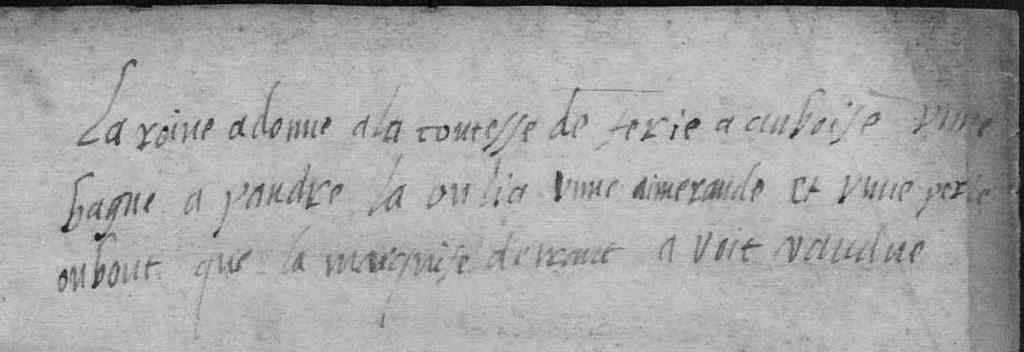 La roine a donne a la contesse de ferie a anboise vnne
bague a pandre la ou lia vnne aimeraude et vnne perle
oubout que la marquise de nont a voit vandue